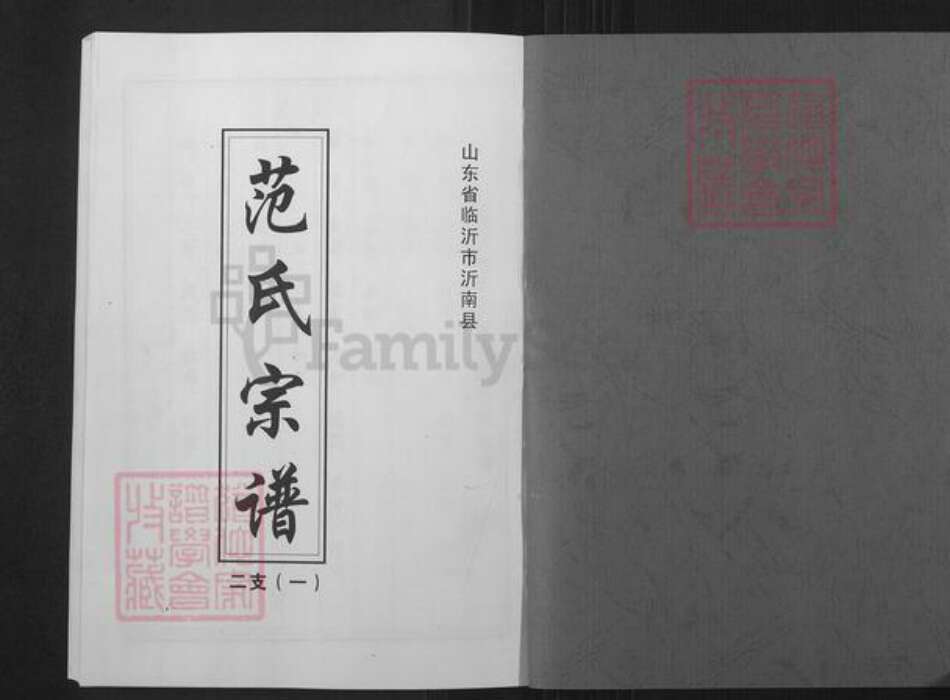 山东省临沂市沂南县
范氏宗谱
二支（一）
FamilyS